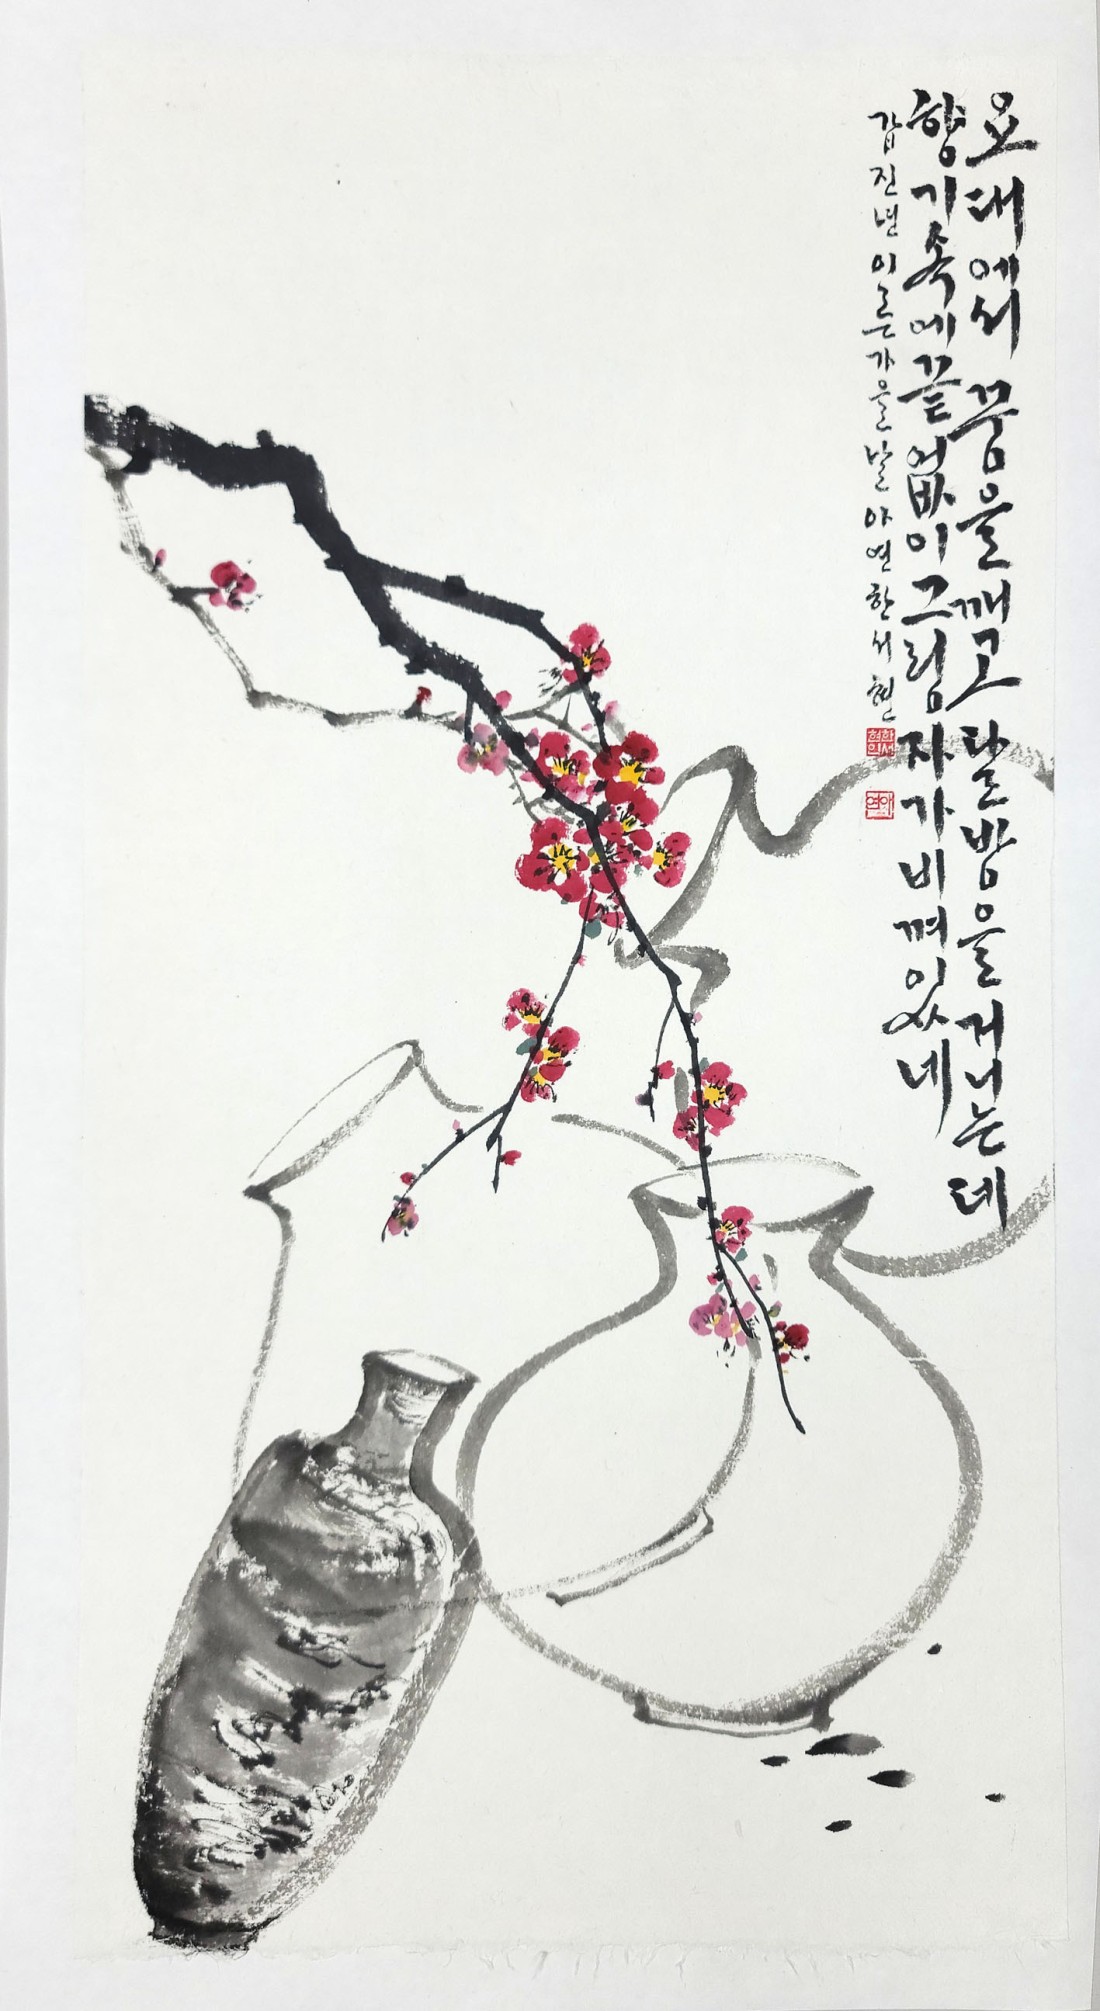 요대에서 꿈을 깨고 달밤을 거니는데
향기 속에 끝없이 그림자가 비껴있네
갑진년 이른 가을날 아연 한서현